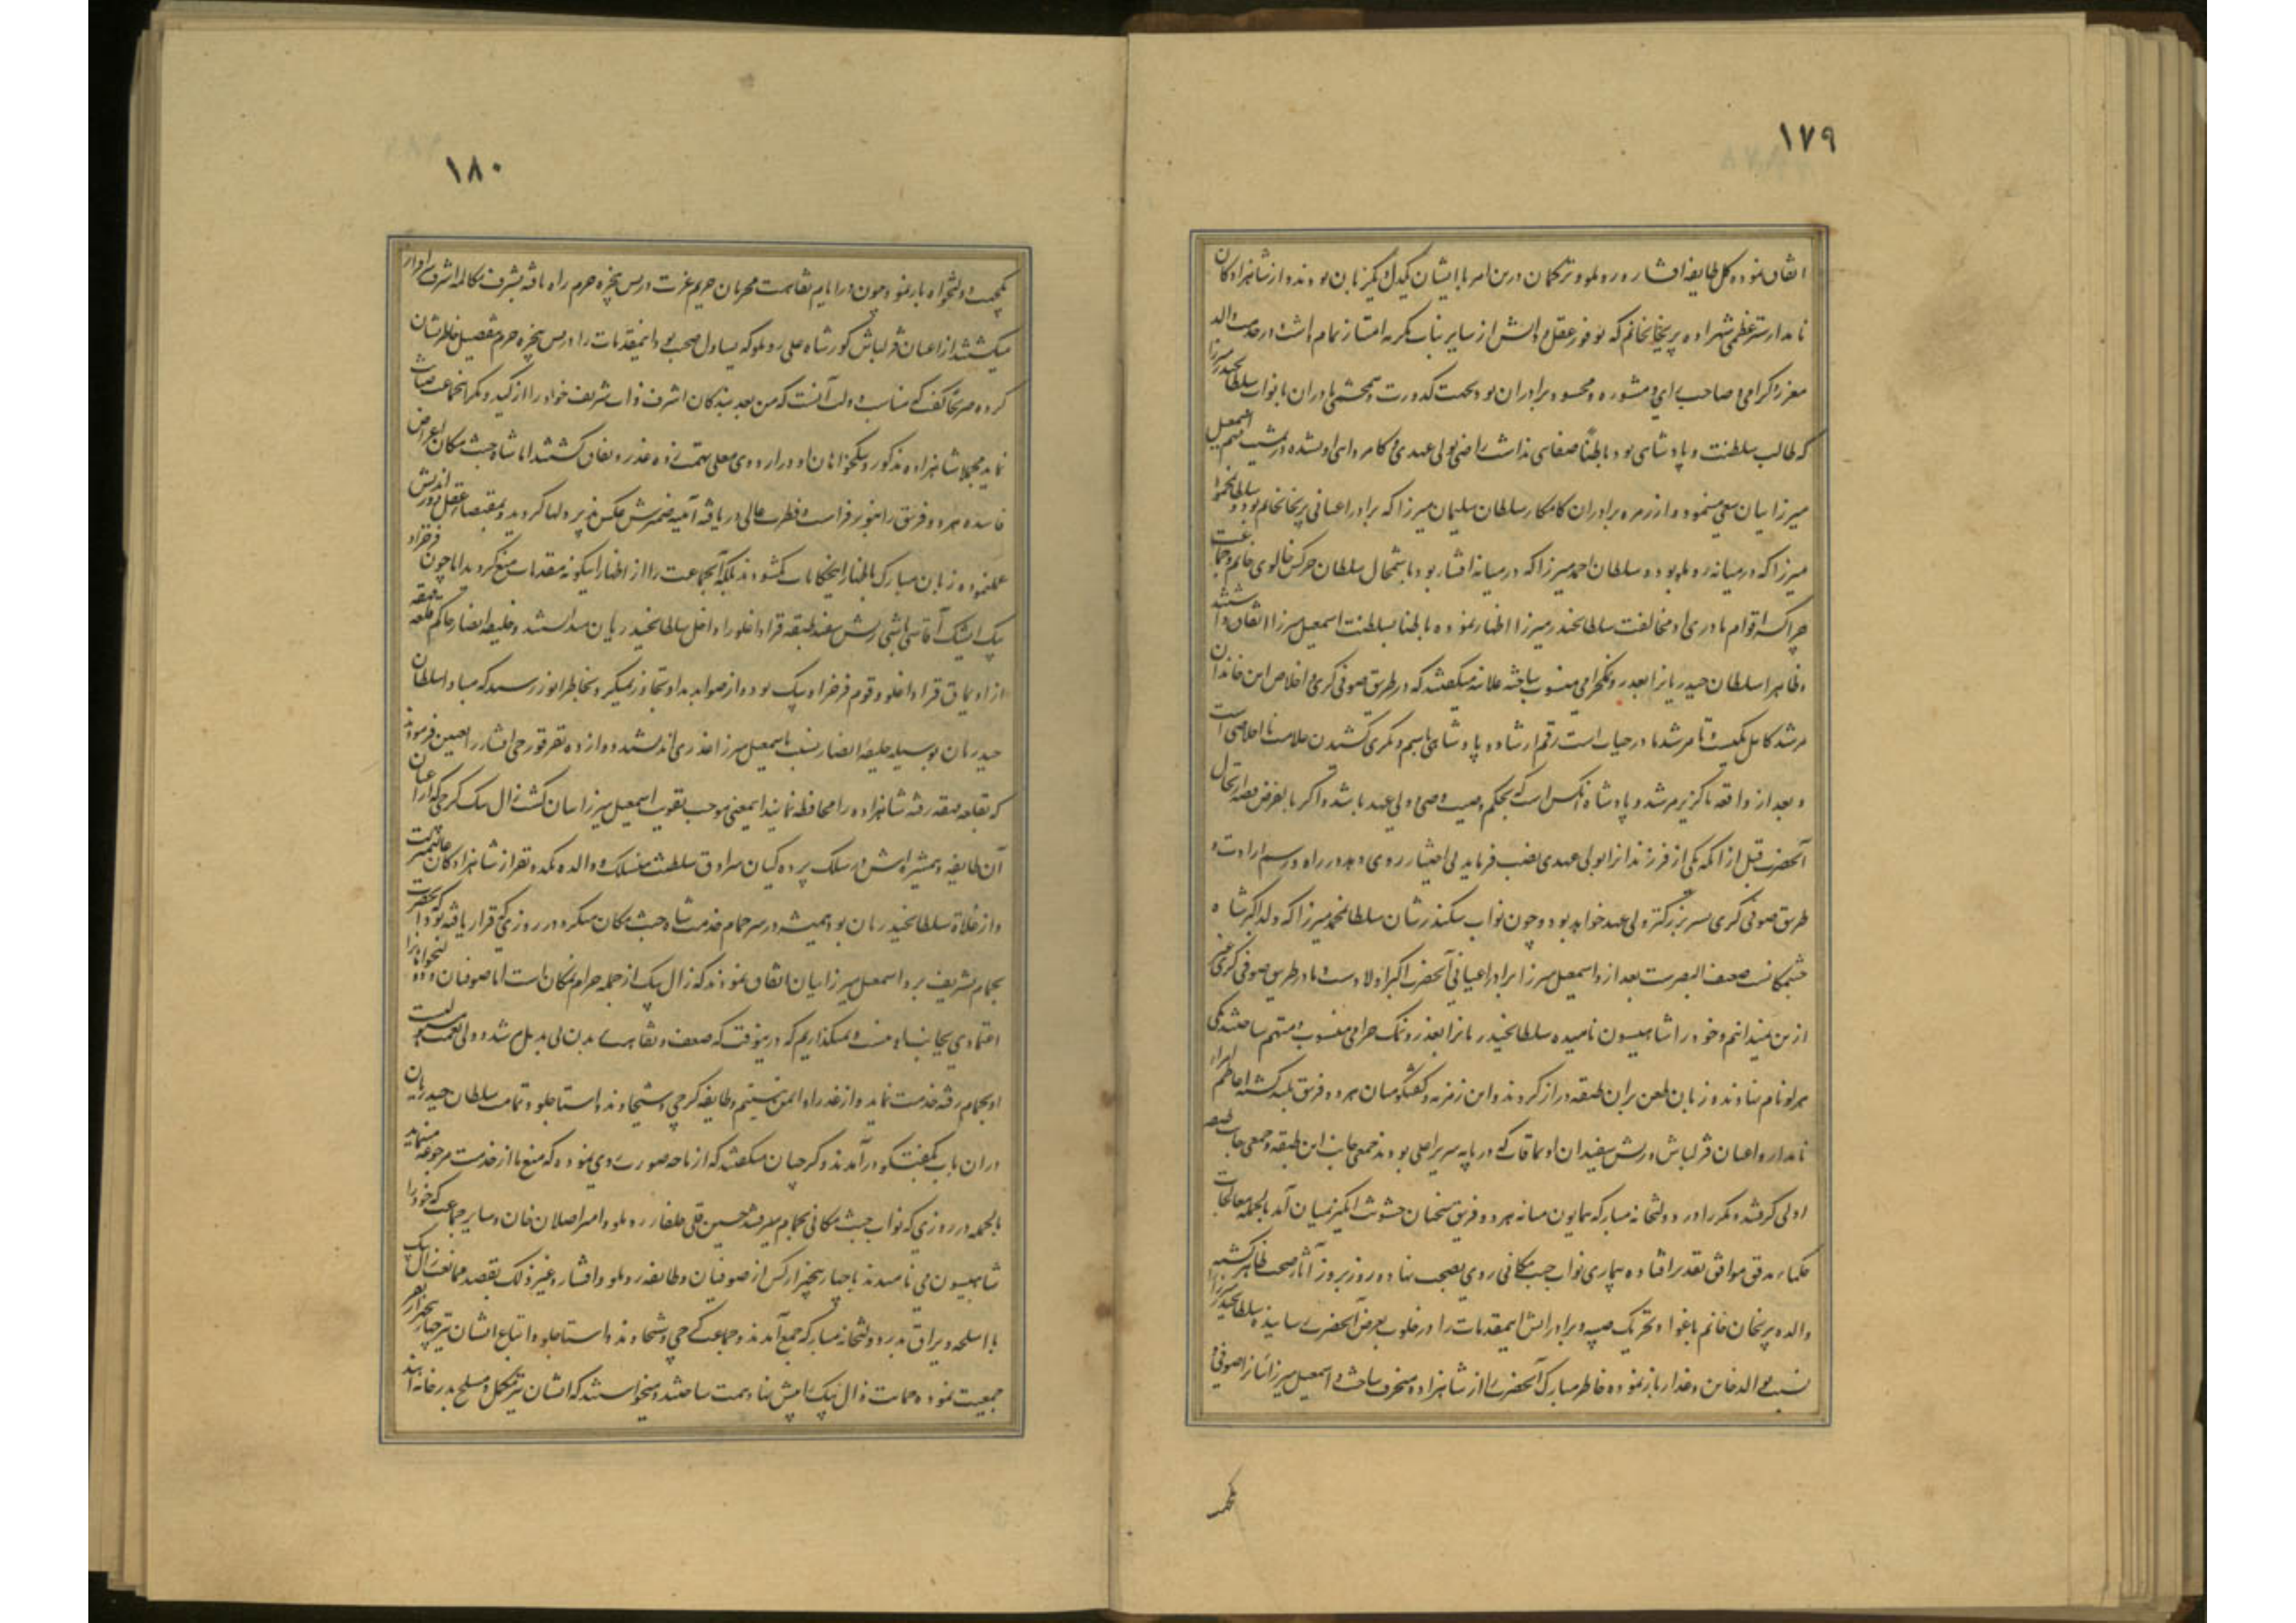 ١٧٩
اتفاق نموده کل طایفه افشار و روملو و ترکمان درین امر با ایشان یکدل و یکزبان بودند و از شاهزادگان
نامدار ستر عظمی شهزاده پریخانخانم که بوفور عقل و دانش از سایر بنات مکرمه امتیاز تمام داشت و در خدمت والد
معزز و گرامی و صاحب رای و مشوره و محسود برادران بود بجهت کدورت و همچشمی مادران با نواب سلطانحیدر میرزا
که طالب سلطنت و پادشاهی بود باطناً صفایی نداشت راضی بولیعهدی و کامروایی او نشده در مشیت مهم اسمعیل
میرزاییان سعی مینمود و از زمره برادران کامکار سلطان سلیمان میرزا که برادر اعیانی پریخانخانم بود و سلطانمحمود
میرزا که در میانه روملو بود و سلطان احمد میرزا که در میانه افشار بود با شمخال سلطان چرکس خالوی خانم و جماعت
چراکسه اقوام مادری او مخالفت سلطانحیدر میرزا اظهار نموده باطنا بسلطنت اسمعیل میرزا اتفاق داشتند
و ظاهرا سلطان حیدریانرا بغدر و نمکحرامی منسوب ساخته علانیه میگفتند که در طریق صوفی گری و اخلاص این خاندان
مرشد کامل یکیست تا مرشد ما در حیات است رقم ارشاد و پادشاهی باسم دیگری کشیدن علامت نااخلاصی است
و بعد از واقعه ناگزیر مرشد و پادشاه آنکس است که بحکم وصیت وصی و ولی عهد باشد و اگر بالفرض قضیه ارتحال
آنحضرت قبل از آنکه یکی از فرزندانرا بولی عهدی نصب فرماید بی اختیار روی دهد در راه و رسم ارادت و
طریق صوفی گری پسر بزرگتر ولی عهد خواهد بود و چون نواب سکندرشان سلطانمحمد میرزا که ولد اکبر شاه
جنتمکانست ضعیف البصرست بعد ازو اسمعیل میرزا برادر اعیانی آنحضرت اکبر اولادست ما در طریق صوفی گری غیر
ازین نمیدانیم و خود را شاهیسون نامیده سلطانحیدریانرا بغدر و نمک حرامی منسوب و متهم ساختند یکی
بر او نام نهادند و زبان طعن بر آن طبقه دراز کردند و این زمزمه و گفتگو میان هر دو فریق بلند گشته اعاظم امراء
نامدار و اعیان قزلباش و ریش سفیدان اویماقات که در پایه سریر اعلی بودند جمعی جانب این طبقه و جمعی جانب طبقه
اولی گرفتند و مکرر در دولتخانه مبارکه همایون میانه هر دو فریق سخنان خشونت انگیز بمیان آمد بالجمله معالجات
حکماء حاذق موافق تقدیر افتاده بیماری نواب جنت مکانی روی بصحت نهاد و روز بروز آثار صحت ظاهر گشته
والده پریخان خانم باغوا و تحریک صبیه و برادرانش اینمقدمات را در خلوت بعرض آنحضرت رسانیده سلطانحیدر میرزا را
نسبت بوالد خاین و غدار باز نموده خاطر مبارک آنحضرت را از شاهزاده منحرف ساخت و اسمعیل میرزائیانرا صوفی و
یکجهت
١٨٠
یکجهت و دولتخواه باز نمود و چون در ایام نقاهت محرمان حریم عزت در پس پنجره حرم راه یافته بشرف مکالمه اشرف سرافراز
میگشتند از اعیان قزلباش کور شاه علی روملو که یساول صحبت بود اینمقدمات را در پس پنجره حرم بتفصیل خاطرنشان
کرده صریحا گفت که مناسب دولت آنست که من بعد بندگان اشرف ذات شریف خود را از کید و مکر آنجماعت صیانت
نماید مجملا شاهزاده مذکور و یکجهتان او در اردوی معلی بتهمت زده غدر و نفاق گشتند اما شاه جنت مکان اغراض
فاسده هر دو فریق را بنور فراست و فطرت عالی دریافته آئینه ضمیرش عکس پذیر دلها گردید و بمقتضای عقل دور اندیش
عمل نموده زبان مبارک باظهار این حکایات نگشودند بلکه آنجماعت را از اظهار اینگونه مقدمات منع کردند اما چون فرخزاد
بیک ایشیک آقاسی باشی ریش سفید طبقه قراداغلو را داخل سلطانحیدریان میدانستند و خلیفه انصار حاکم قلعه قهقهه
از اویماق قراداغلو و قوم فرخزاد بیک بود و از صوابدید او تجاوز نمیکرد بخاطر انور رسید که مبادا سلطان
حیدریان بوسیله خلیفه انصار نسبت باسمعیل میرزا غدری اندیشند دوازده نفر قورچی افشار را تعیین فرمودند
که بقلعه قهقهه رفته شاهزاده را محافظه نمایند اینمعنی موجب تقویت اسمعیل میرزاییان گشت زال بیک گرجی که از اعیان
آن طایفه و همشیره اش در سلک پرده گیان سرادق سلطنت منسلک و والده یکدو نفر از شاهزادگان عالیمرتبت
و از غلاة سلطانحیدریان بود همیشه در سر حمام خدمت شاه جنت مکان میکرد در روزی که قرار یافته بود که آنحضرت
بحمام تشریف برد اسمعیل میرزاییان اتفاق نمودند که زال بیک از جمله حرام نمکان است ما صوفیان و دولتخواهانرا
اعتمادی بجانب او نیست و نمیگذاریم که درینوقت که ضعف و نقاهت بدن بی بدیل مرشد و ولی نعمت
او بحمام رفته خدمت نماید و از غدر او ایمن نیستیم و طایفه گرجی و شیخاوند و استاجلو و تمامت سلطان حیدریان
در آن باب بگفتگو درآمدند و گرجیان میگفتند که از ما چه صورت روی نموده که منع ما از خدمت مرجوعه مینمایند
بالجمله در روزی که نواب جنت مکانی بحمام میرفتند حسین قلی خلفاء روملو و امیر اصلان خان و سایر جماعت که خود را
شاهیسون می نامیدند با چهار پنجهزار کس از صوفیان و طایفه روملو و افشار و غیر ذلک بقصد ممانعت زال بیک
با اسلحه و یراق بدر دولتخانه مبارکه جمع آمدند و جماعت گرجی و شیخاوند و استاجلو و اتباع ایشان نیز چهار پنجهزار نفر
جمعیت نموده حمایت زال بیک را پیش نهاد همت ساختند و میخواستند که ایشان نیز مکمل و مسلح بدرخانه آیند